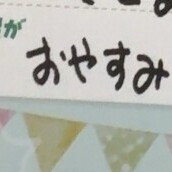 が
おやすみ